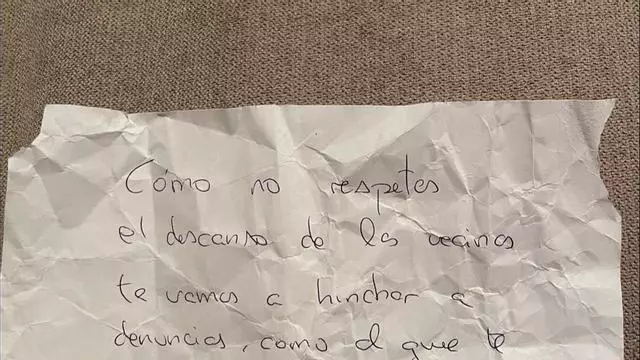 Cómo no respetes
el descanso de los vecinos
te vamos a hinchar a
denuncias, como el que te